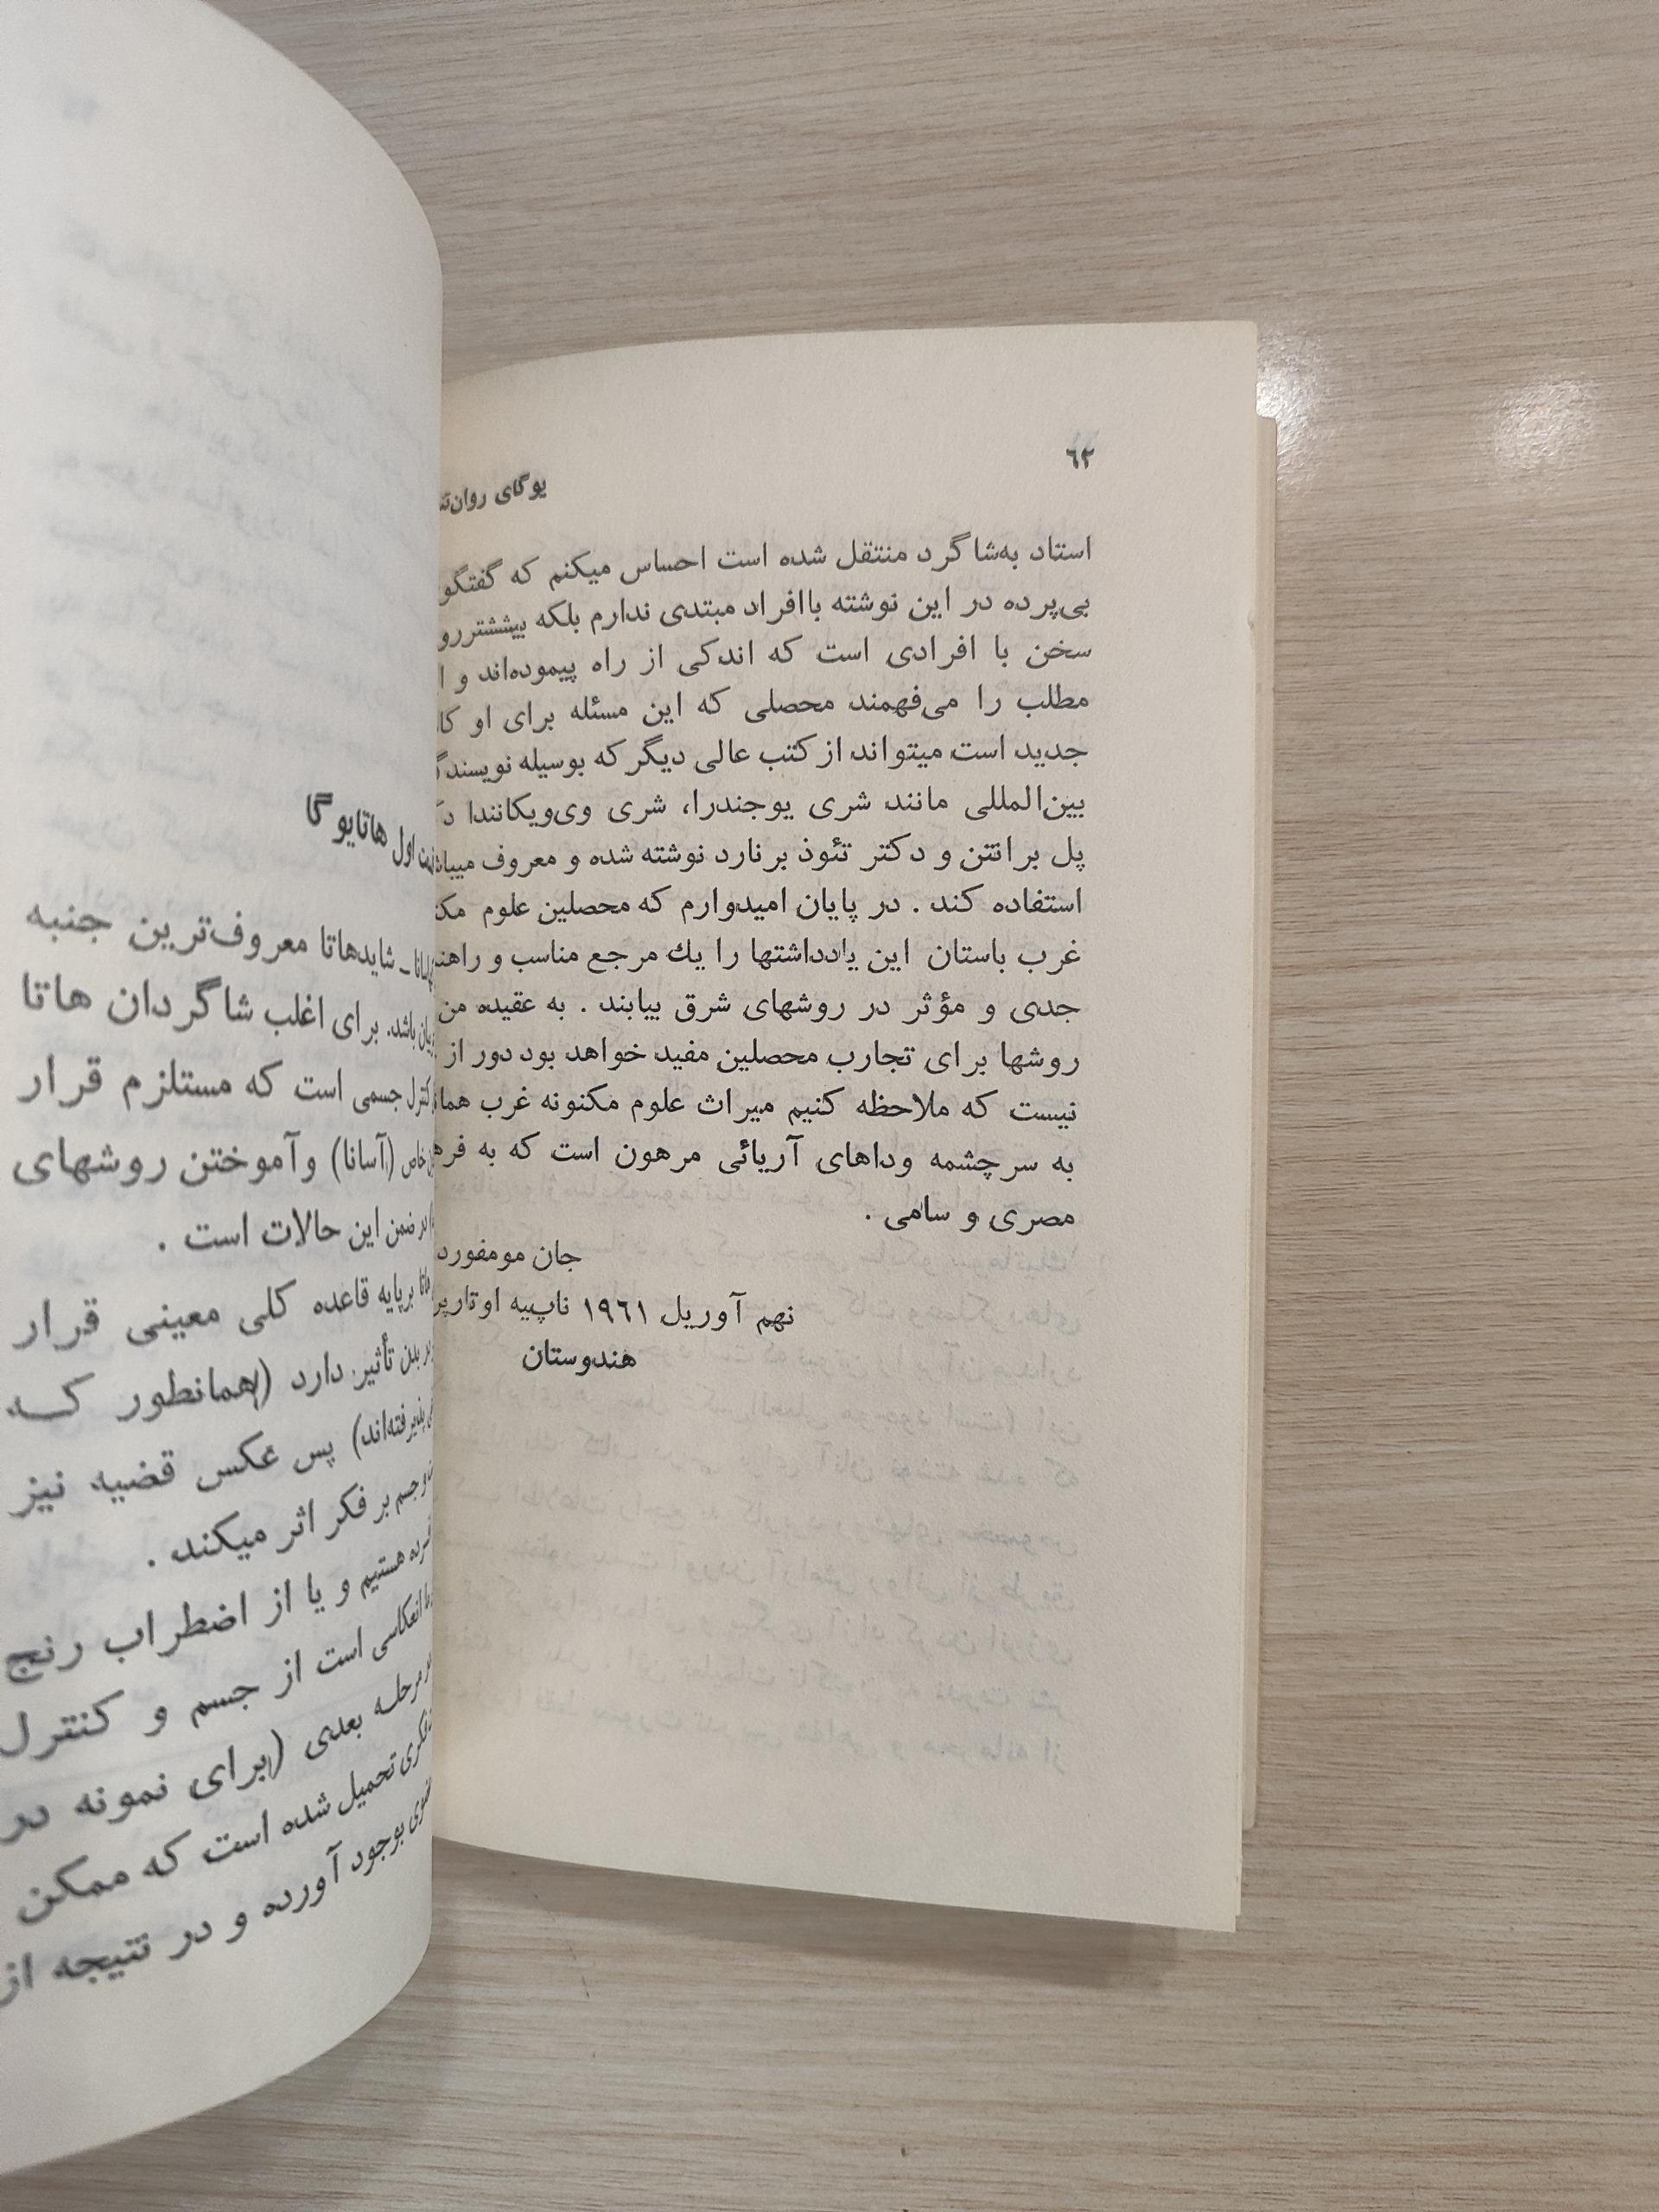 ٦٢
یوگای
استاد به‌شاگرد منتقل شده است احساس میکنم که گفتگو
بی‌پرده در این نوشته باافراد مبتدی ندارم بلکه
سخن با افرادی است که اندکی از راه پیموده‌اند و
مطلب را می‌فهمند محصلی که این مسئله برای او
جدید است میتواند از کتب عالی دیگر که بوسیله
بین‌المللی مانند شری یوجندرا، شری وی‌ویکانندا
پل برانتن و دکتر تئوذ برنارد نوشته شده و معروف
استفاده کند . در پایان امیدوارم که محصلین علوم
غرب باستان این یادداشتها را یك مرجع مناسب و
جدی و مؤثر در روشهای شرق بیابند . به عقیده من
روشها برای تجارب محصلین مفید خواهد بود دور از
نیست که ملاحظه کنیم میراث علوم مکنونه غرب
به سرچشمه وداهای آریائی مرهون است که به
مصری و سامی .
جان مومفورد
نهم آوریل ١٩٦١ ناپ‌ییه
هندوستان
اول هاتایوگا
ـ شایدهاتا معروف‌ترین جنبه
باشد. برای اغلب شاگردان هاتا
کنترل جسمی است که مستلزم قرار
خاص (آسانا) وآموختن روشهای
در ضمن این حالات است .
برپایه قاعده کلی معینی قرار
بر بدن تأثیر دارد (همانطور کـه
پذیرفته‌اند) پس عکس قضیه نیز
و جسم بر فکر اثر میکند .
هستیم و یا از اضطراب رنج
انعکاسی است از جسم و کنترل
مرحله بعدی (برای نمونه در
فکری تحمیل شده است که ممکن
بوجود آورده و در نتیجه از